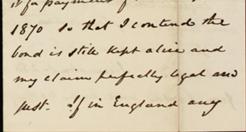 it for payment of
1870 so that I contend the
bond is still kept alive and
my claim perfectly legal and
just. If in England any